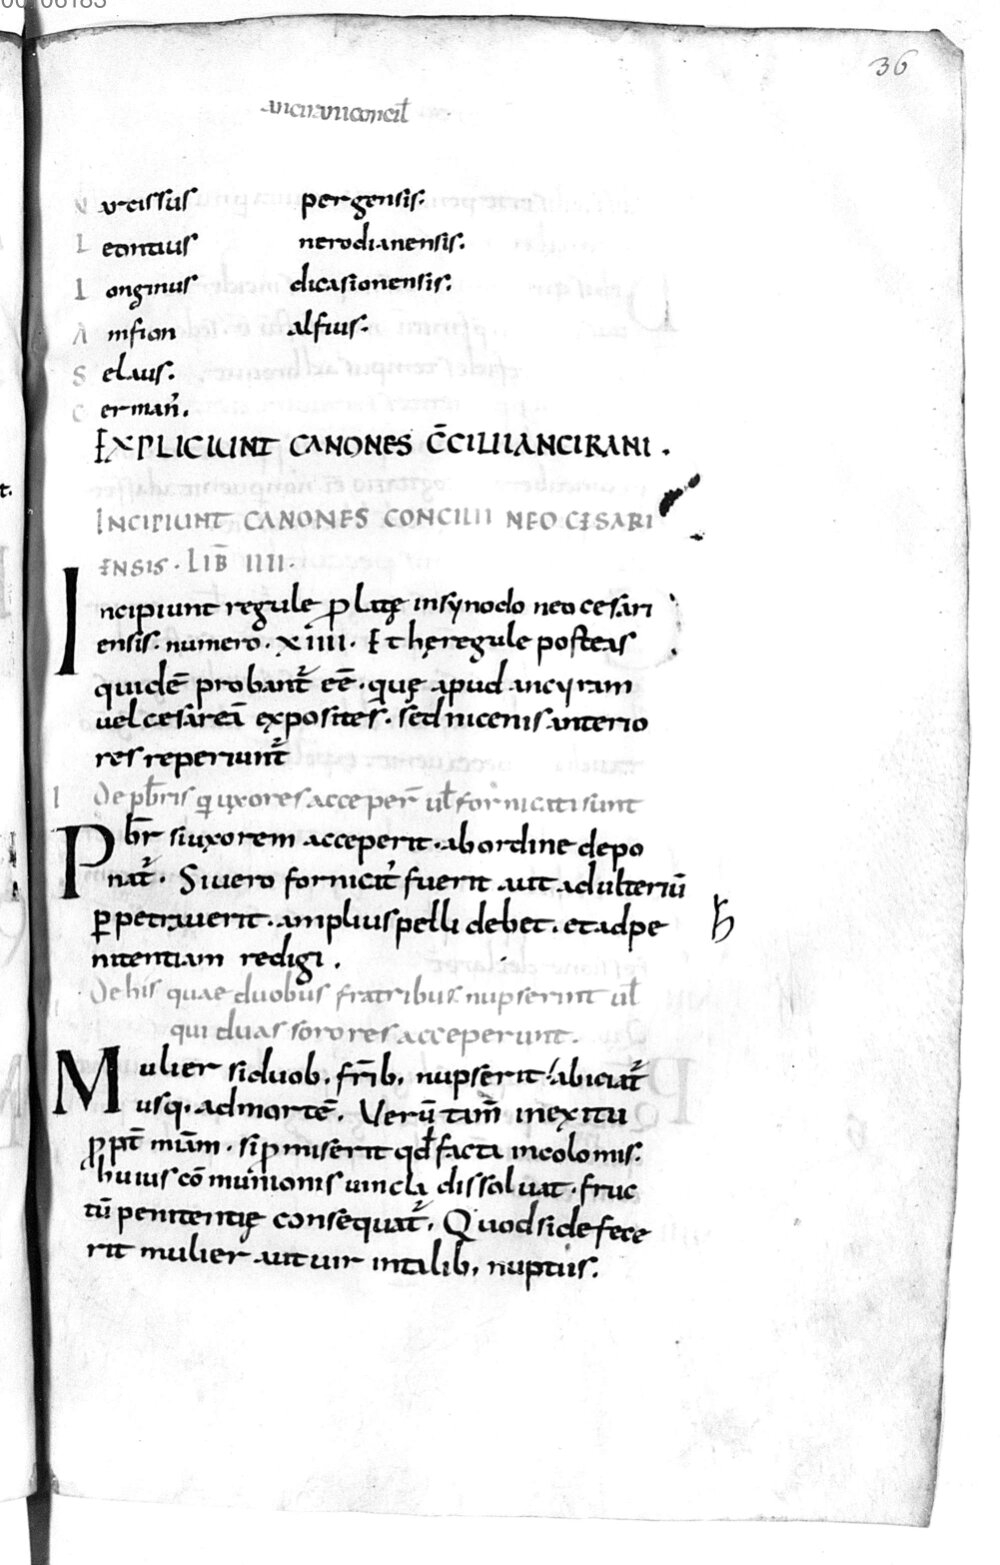 36
ancirani concil̄
Narcissus pergensis.
Leontius nerodianensis.
Longinus dicasionensis.
Amfion alfius.
Selaus.
Germañ.
EXPLICIUNT CANONES C̄CILII ANCIRANI.
INCIPIUNT CANONES CONCILII NEOCESARI
ENSIS. LIB̄ IIII.
Incipiunt regule ꝓlatę in synodo neocesari
ensis. numero. XIIII. Et hę regule posteas
quidē probant᷑ eē. quę apud ancyram
uel cesareā expositę s̄. sed nicenis anterio
res reperiunt᷑
I De p̄bris qui uxores acceper̄ ul̄ fornicati sunt
Pb̄r si uxorem acceperit. ab ordine depo
nat᷑. Si uero fornicat᷑ fuerit aut adulteriū
ꝑpetrauerit. amplius pelli debet. et ad pe
nitentiam redigi.
De his quae duobus fratribus nupserint ul̄
qui duas sorores acceperunt.
Mulier si duob. fr̄ib. nupserit abiciat᷑
usq. ad mortē. Verū tam̄ in exitu
ꝓpt̄ mīam. si ꝓmiserit qd̄ facta incolomis.
huius cōmunionis uincla dissoluat. fruc
tū penitentię consequat᷑. Quod si defece
rit mulier aut uir in talib. nuptiis.